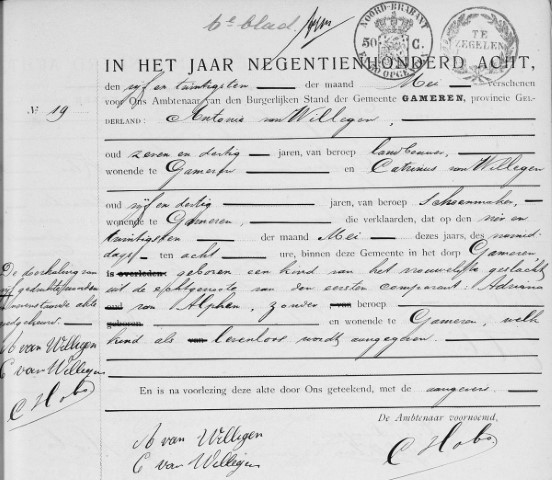 6e blad.
NOORD-BRABANT
50 C.
TE
ZEGELEN
IN HET JAAR NEGENTIENHONDERD ACHT,
den vijf en twintigsten der maand Mei verschenen
No. 19
voor Ons Ambtenaar van den Burgerlijken Stand der Gemeente GAMEREN, provincie GEL-
DERLAND: Antonie van Willegen,
oud zeven en dertig jaren, van beroep landbouwer,
wonende te Gameren en Catrinus van Willegen
oud vijf en dertig jaren, van beroep Schoenmaker,
wonende te Gameren, die verklaarden, dat op den vier en
twintigsten der maand Mei dezes jaars, des namid-
dags ten acht ure, binnen deze Gemeente in het dorp Gameren
is overleden: geboren een kind van het vrouwelijke geslacht
uit de echtgenoote van den eersten comparant: Adriana
oud van Alphen, zonder van beroep
geboren en wonende te Gameren, welk
kind als van levenloos wordt aangegeven.
De doorhaling van
gedrukte woorden
in nevenstaande akte
goedgekeurd.
A van Willigen
C van Willegen
C Hobo
En is na voorlezing deze akte door Ons geteekend, met de aangevers
De Ambtenaar voornoemd,
A van Willigen
C van Willegen
C Hobo